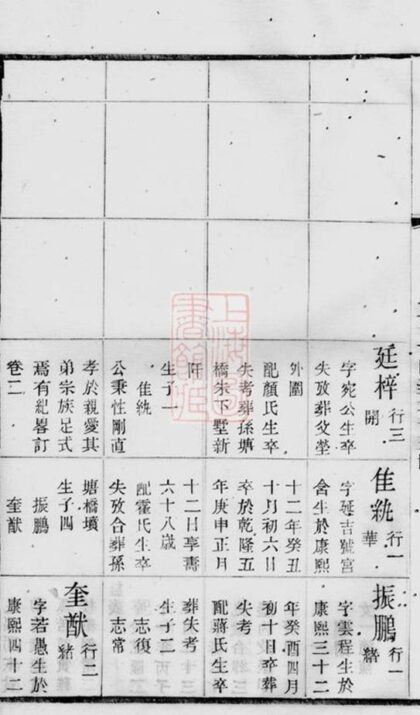 廷梓 行三 開
字宛公生卒
失攷葬父塋
外圍
配顏氏生卒
失考葬孫塘
橋朱下墅新
阡
生子一
佳統
公秉性剛直
孝於親愛其
弟宗族足式
焉有紀畧訂
卷二
佳統 行一 華
字延吉號宮
含生於康熙
十二年癸丑
十月初六日
卒於乾隆五
年庚申正月
十二日享壽
六十八歲
配霍氏生卒
失攷合葬孫
塘橋墳
生子四
振鵬
奎猷
振鵬 行一 緒
字雲程生於
康熙三十二
年癸酉四月
初十日卒葬
失考
配蔣氏生卒
葬失考
生子二
志復
志常
奎猷 行二 緒
字若愚生於
康熙四十三
上海圖
書館藏